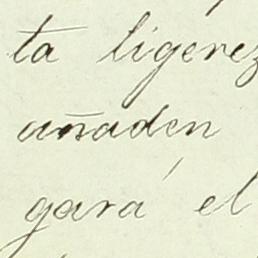 ta ligerez
añaden
gará el